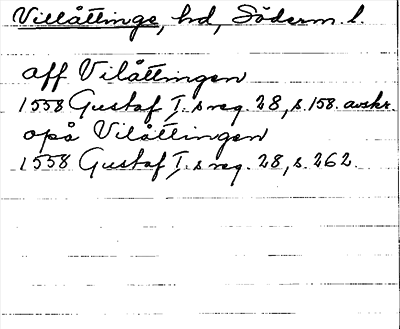 Villåttinge, hd, Söderm. l.
aff Vilåttingen
1558 Gustaf I:s reg. 28, s. 158. avskr.
opå Vilåttingen
1558 Gustaf I:s reg. 28, s. 262